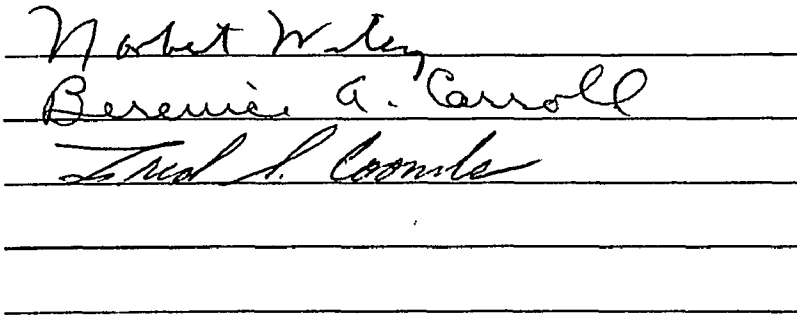 Norbert Wiley
Berenice A. Carroll
Fred S. Coombs